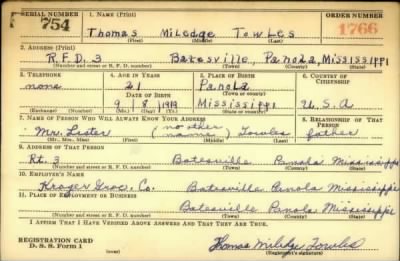 SERIAL NUMBER 1. NAME (Print) ORDER NUMBER
754 Thomas Miledge Towles 1766
(First) (Middle) (Last)
2. ADDRESS (Print)
R.F.D. 3 Batesville, Panola, Mississippi
(Number and street or R. F. D. number) (Town) (County) (State)
3. TELEPHONE 4. AGE IN YEARS 5. PLACE OF BIRTH 6. COUNTRY OF CITIZENSHIP
none 21 Panola
DATE OF BIRTH (Town or county)
9 8 1919 Mississippi U.S.A
(Exchange) (Number) (Mo.) (Day) (Yr.) (State or country)
7. NAME OF PERSON WHO WILL ALWAYS KNOW YOUR ADDRESS 8. RELATIONSHIP OF THAT PERSON
Mr. Lester (no other name) Towles father
(Mr., Mrs., Miss) (First) (Middle) (Last)
9. ADDRESS OF THAT PERSON
Rt. 3 Batesville Panola Mississippi
(Number and street or R. F. D. number) (Town) (County) (State)
10. EMPLOYER'S NAME
Kroger Groc. Co. Batesville Panola Mississippi
11. PLACE OF EMPLOYMENT OR BUSINESS
Batesville Panola Mississippi
(Number and street or R. F. D. number) (Town) (County) (State)
I AFFIRM THAT I HAVE VERIFIED ABOVE ANSWERS AND THAT THEY ARE TRUE.
REGISTRATION CARD
D. S. S. Form 1 Thomas Miledge Towles
(Registrant's signature)